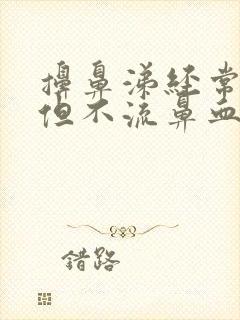 擤鼻涕经常
但不流鼻血
错路